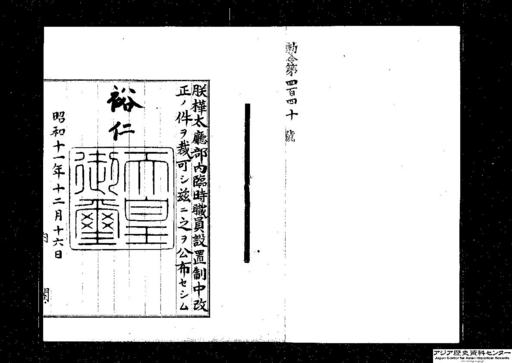 勅令第四百四十號
朕樺太廳部内臨時職員設置制中改
正ノ件ヲ裁可シ茲ニ之ヲ公布セシム
裕仁
天皇御璽
昭和十一年十二月十六日
内閣
アジア歴史資料センター
Japan Center for Asian Historical Records